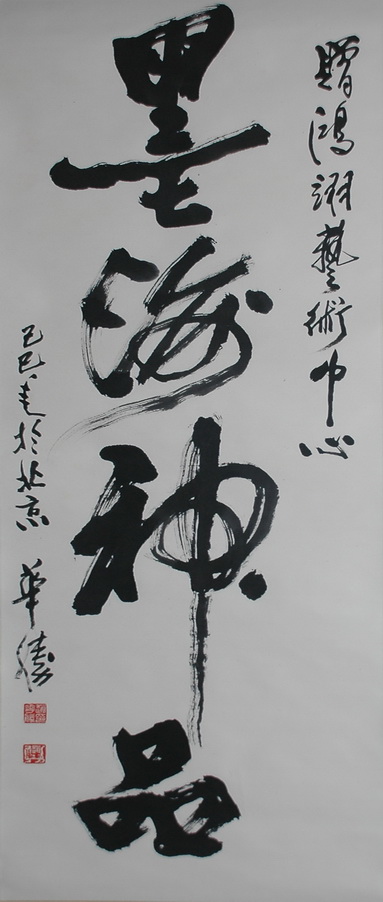 贈鴻翔藝術中心
墨海神品
己巳春於北京 華勝